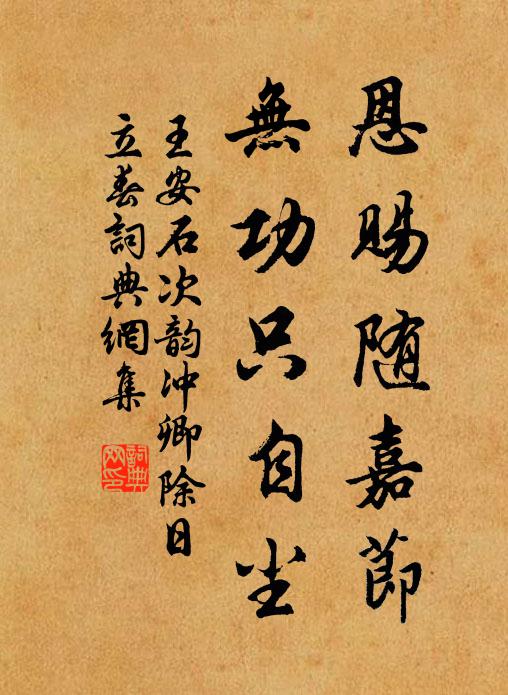 恩賜随嘉節
無功只自尘
王安石次韵冲卿除日
立春詞典網集
詞典网印